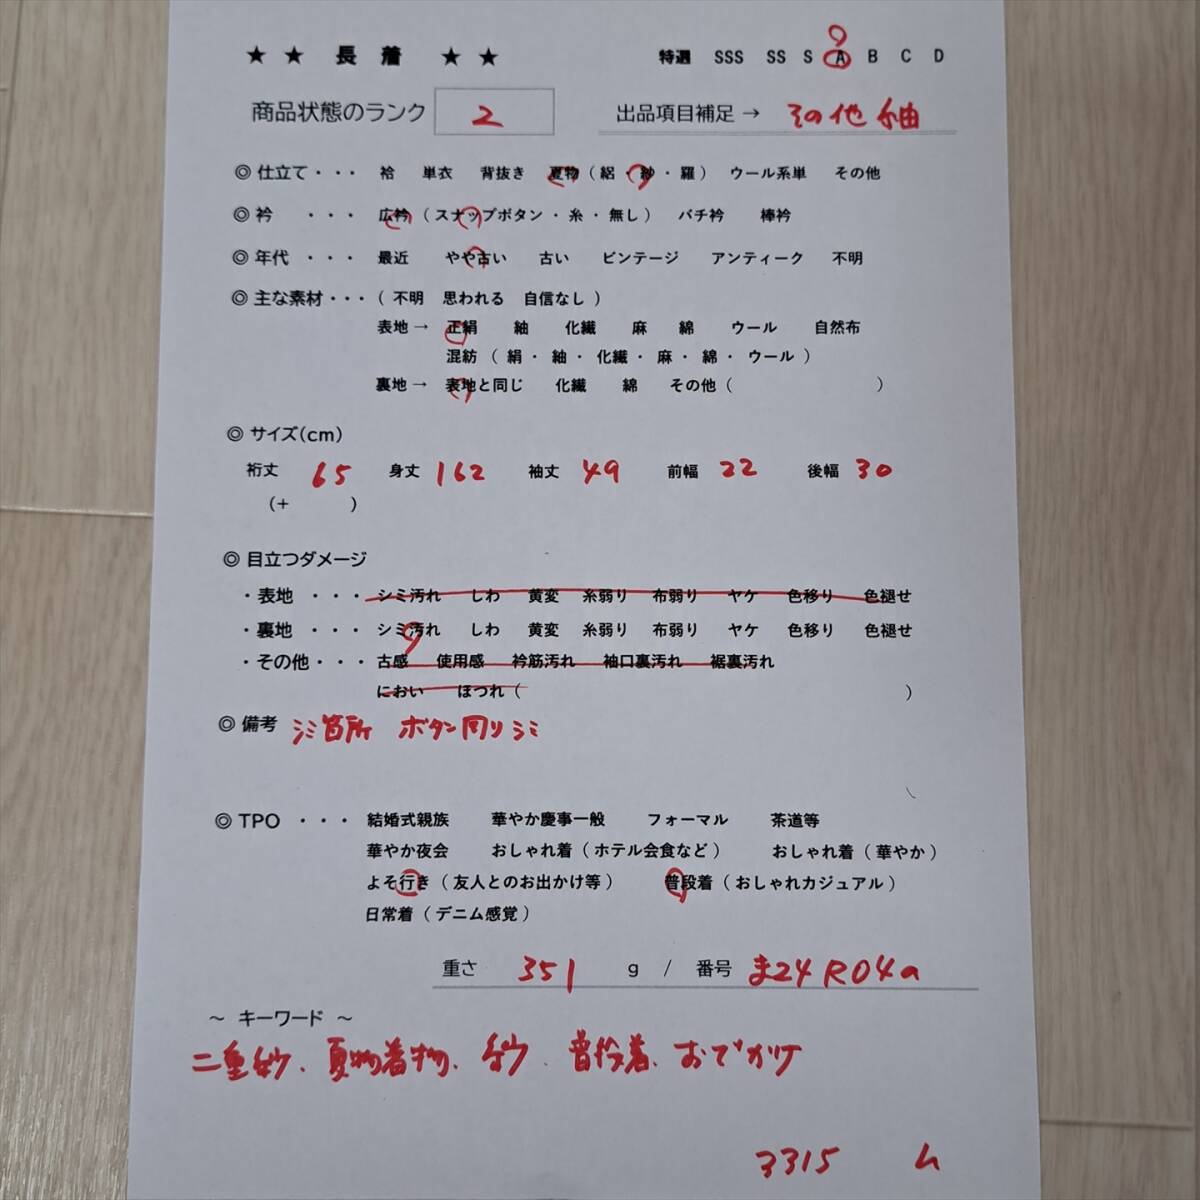 ★ ★ 長 着 ★ ★ 特選 SSS SS S A B C D
商品状態のランク 2 出品項目補足 → その他 紬
◎ 仕立て・・・ 袷 単衣 背抜き 夏物 ( 絽 ・ 紗 ・ 羅 ) ウール系単 その他
◎ 衿 ・・・ 広衿 ( スナップボタン ・ 糸 ・ 無し ) バチ衿 棒衿
◎ 年代 ・・・ 最近 やや古い 古い ビンテージ アンティーク 不明
◎ 主な素材・・・ ( 不明 思われる 自信なし )
表地 → 正絹 紬 化繊 麻 綿 ウール 自然布
混紡 ( 絹 ・ 紬 ・ 化繊 ・ 麻 ・ 綿 ・ ウール )
裏地 → 表地と同じ 化繊 綿 その他 ( )
◎ サイズ(cm)
裄丈 65 身丈 162 袖丈 49 前幅 22 後幅 30
(+ )
◎ 目立つダメージ
・表地 ・・・ シミ汚れ しわ 黄変 糸弱り 布弱り ヤケ 色移り 色褪せ
・裏地 ・・・ シミ汚れ しわ 黄変 糸弱り 布弱り ヤケ 色移り 色褪せ
・その他・・・ 古感 使用感 衿筋汚れ 袖口裏汚れ 裾裏汚れ
におい ほつれ ( )
◎ 備考 シミ箇所 ボタン周りシミ
◎ TPO ・・・ 結婚式親族 華やか慶事一般 フォーマル 茶道等
華やか夜会 おしゃれ着 ( ホテル会食など ) おしゃれ着 ( 華やか )
よそ行き ( 友人とのお出かけ等 ) 普段着 ( おしゃれカジュアル )
日常着 ( デニム感覚 )
重さ 351 g / 番号 ま24R04a
～ キーワード ～
二重紗、夏物着物、紗、普段着、おでかけ
3315 ム